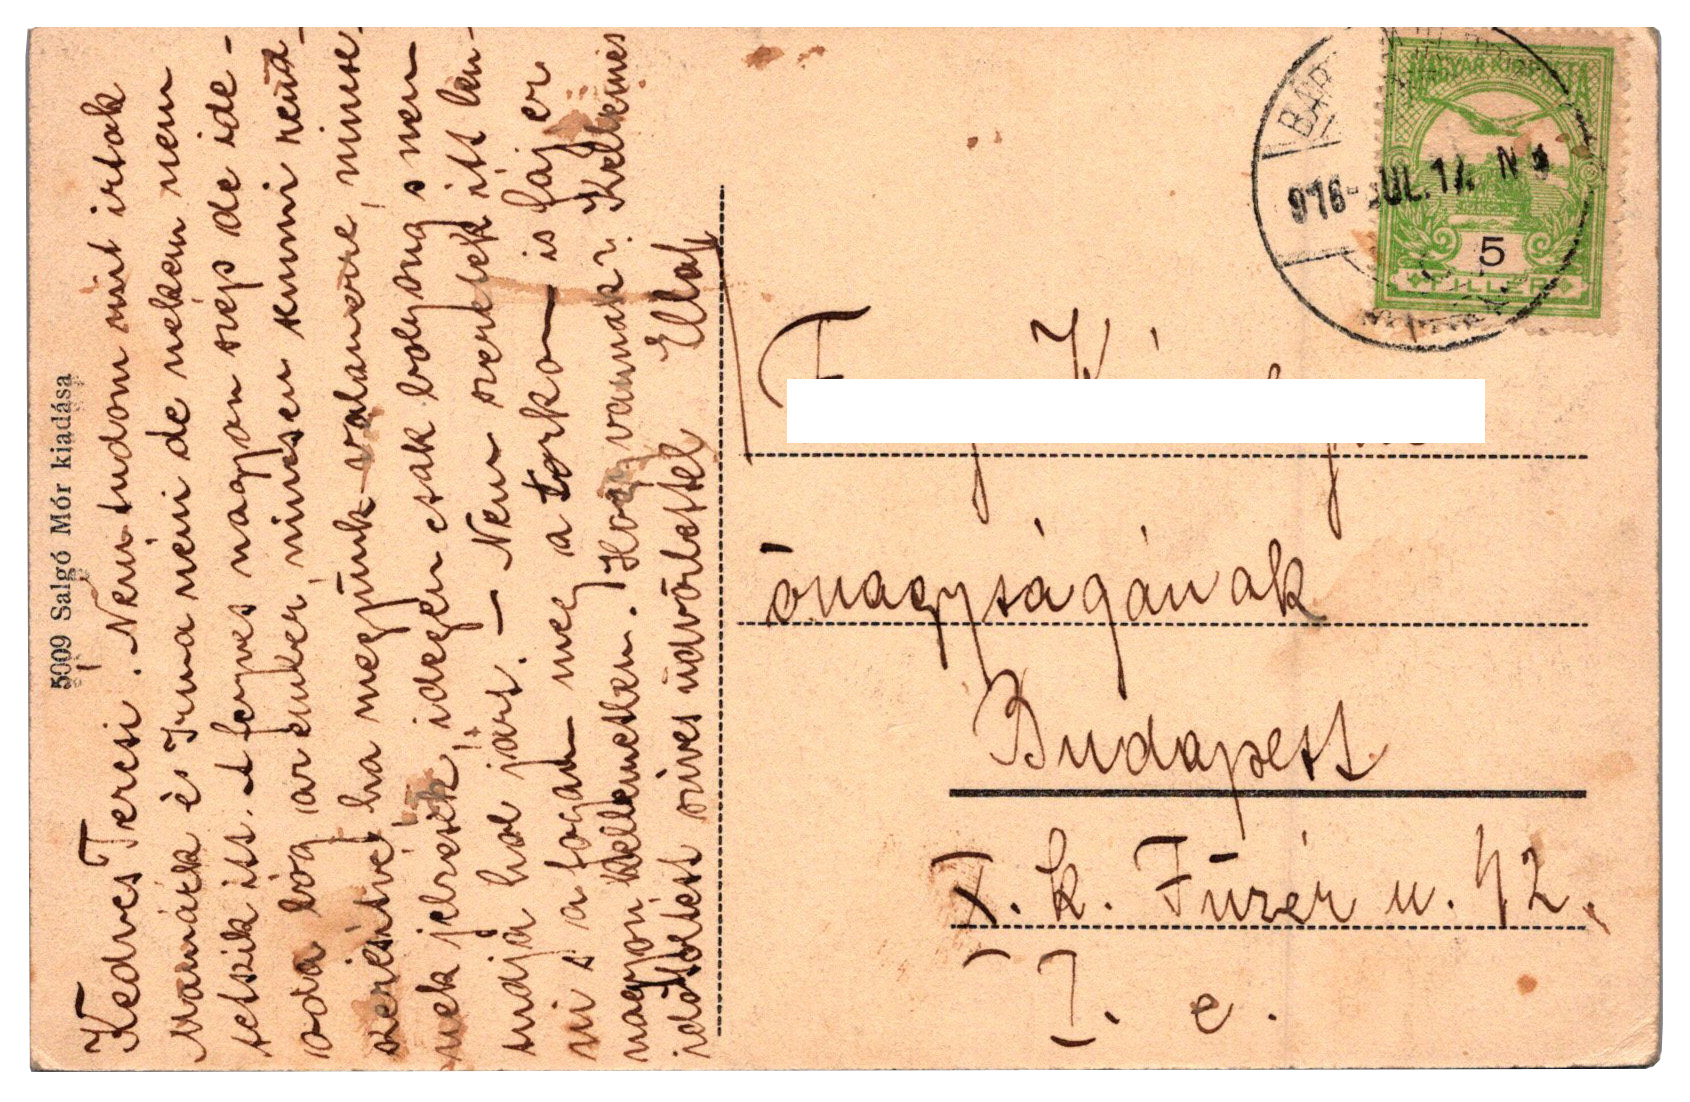 5009 Salgó Mór kiadása
Kedves Tercsi. Nem tudom mit irtak
Mamáék és Irma néni de nekem nem
tetszik itt. A fenyves nagyon szép de ide-
oda lóg az ember, nincsen semmi rend
szerint ha megyünk valamerre, nincse
nek jelzések, idegen csak bolyong s nem
tudja hol járt. — Nem szeretek itt len-
ni s a fogam meg a torkom is fáj ez
nagyon kellemetlen. Hogy vannak? Kellemes
időtöltést szives üdvözlettel Ella
MAGYAR KIR. POSTA
5
FILLÉR
BÁRT
916 JUL. 17. N
őnagyságának
Budapest
X. k. Füzér u. 42.
I. e.